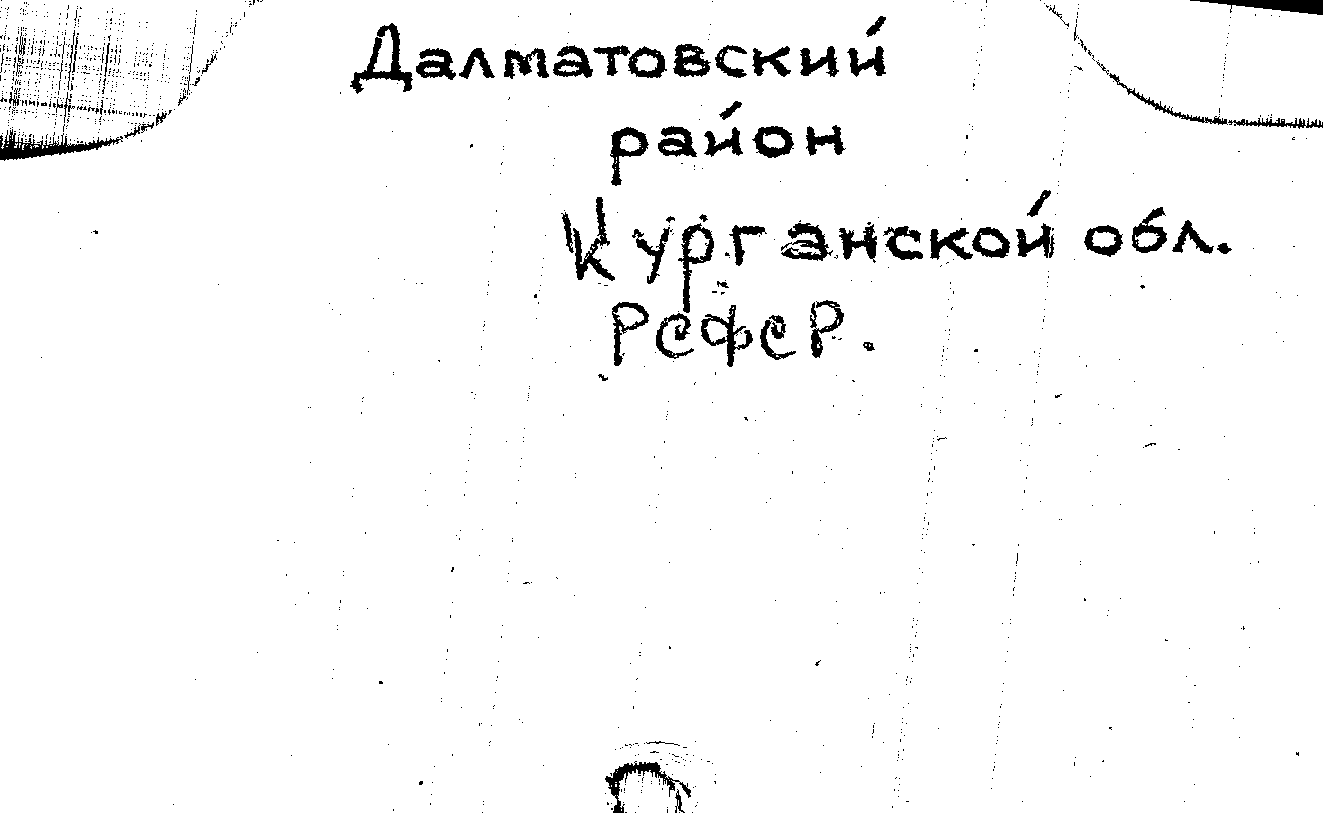 Далматовский
район
Курганской обл.
РСФСР.